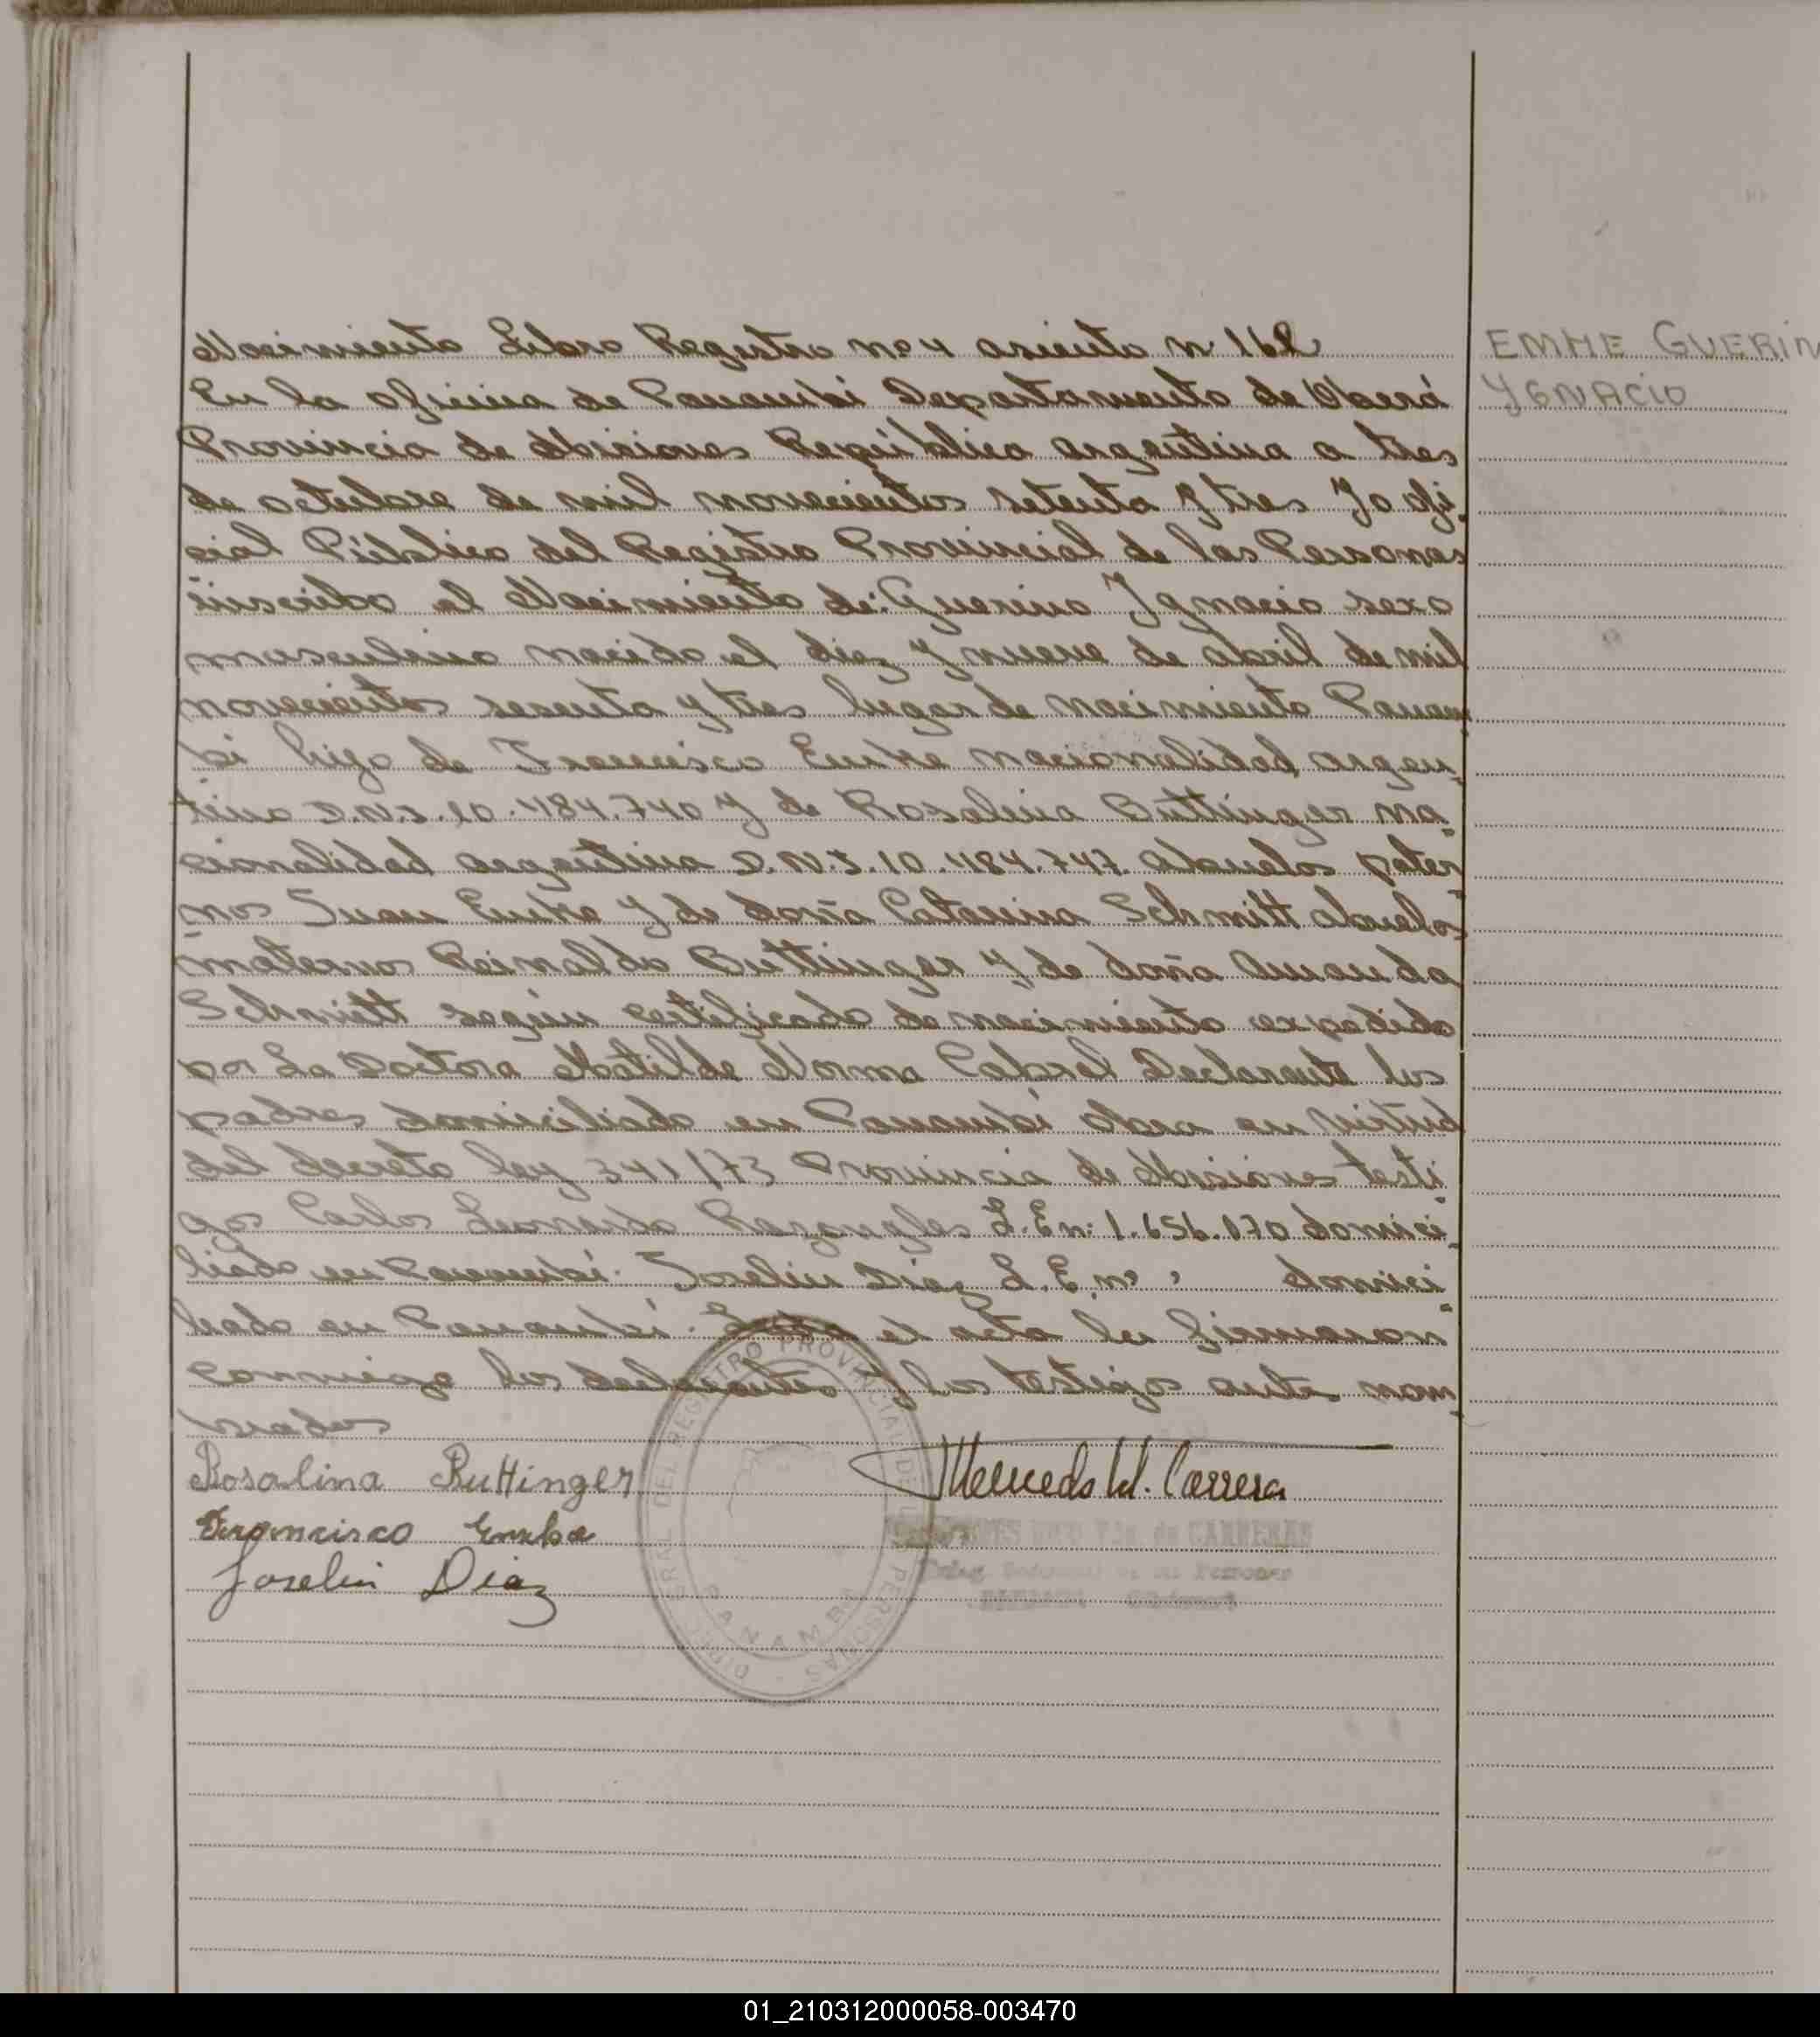 Nacimiento Libro Registro nº 4 asiento nº 168
EMHE GUERIN
YGNACIO
En la oficina de Panambi Departamento de Oberá
Provincia de Misiones República Argentina a tres
de octubre de mil novecientos setenta y tres Yo ofi-
cial Público del Registro Provincial de las Personas
inscribo el Nacimiento de: Guerino Ygnacio sexo
masculino nacido el diez y nueve de abril de mil
novecientos sesenta y tres lugar de nacimiento Panam
bi hijo de Francisco Emhe nacionalidad argen-
tino D.N.I. 10.484.740 y de Rosalina Buttinger na-
cionalidad argentina D.N.I. 10.484.747. abuelos pater
nos Juan Emhe y de doña Catarina Schmitt abuelos
maternos Reinaldo Buttinger y de doña Amanda
Schmitt según certificado de nacimiento expedido
por La Doctora Matilde Norma Cabral Declarante los
padres domiciliado en Panambi obra en virtud
del decreto ley 341/73 Provincia de Misiones testi-
gos Carlos Leonardo L.E nº: 1.656.070 domici-
liado en Panambí. Joselin Diaz L.E. nº: domici-
liado en Panambí. el acta la firmaron
conmigo los declarantes y los testigos ante nom-
brados
Rosalina Buttinger
Mercedes W. Carrera
Francisco Emhe
Joselin Diaz
DIRECC. GRAL DEL REGISTRO PROVINCIAL DE LAS PERSONAS
PANAMBI
de CARRERAS
01_210312000058-003470